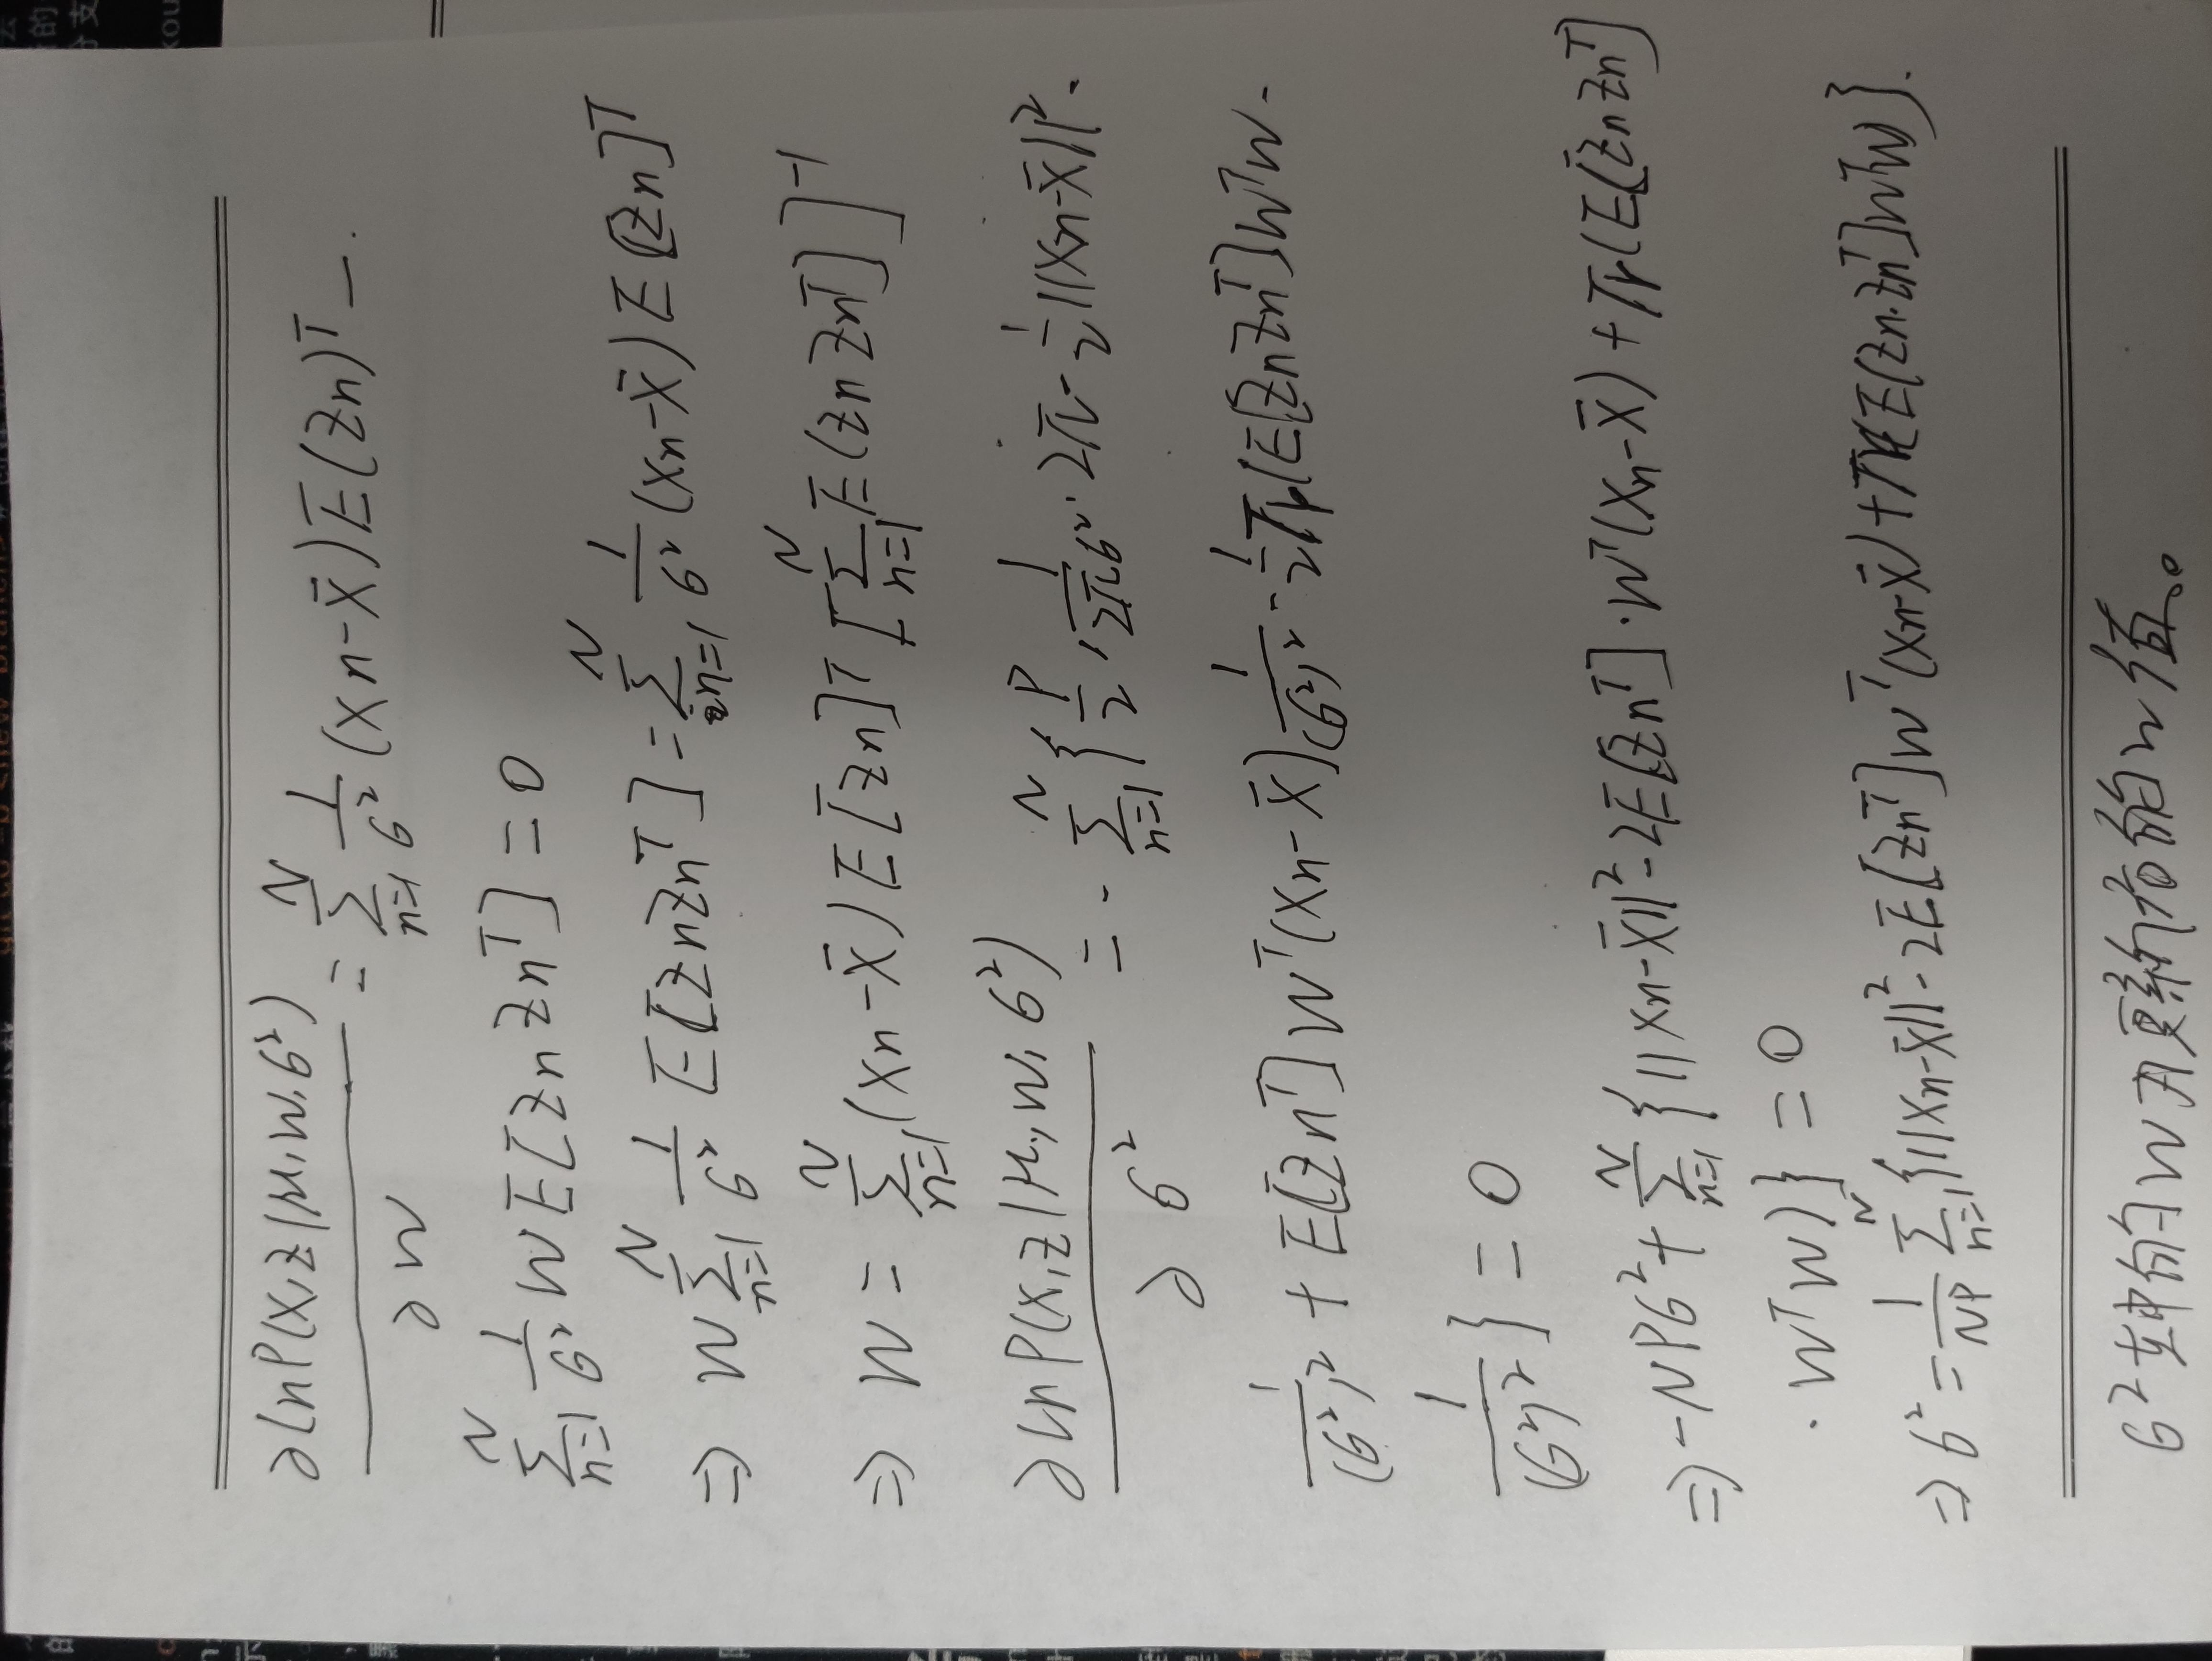 ∂lnP(X,Z|μ,W,σ²)/∂W = Σ_{n=1}^{N} 1/σ² (xn-x̄)E(zn)ᵀ —.
Σ_{n=1}^{N} 1/σ² W E[znznᵀ] = 0
⇒ W Σ_{n=1}^{N} 1/σ² E[znznᵀ] = Σ_{n=1}^{N} 1/σ² (xn-x̄)E[zn]ᵀ
⇒ W = Σ_{n=1}^{N} (xn-x̄)E[zn]ᵀ[Σ_{n=1}^{N} E(znznᵀ]]⁻¹
∂lnP(X,Z|μ,W,σ²)/∂σ² = -Σ_{n=1}^{N} {P/2, 1/2πσ²·2π - 1/2||xn-x̄||².
1/(σ²)² + E[znᵀ]Wᵀ(xn-x̄)1/(σ²)² - 1/2Tr(E[znznᵀ]WᵀW.
1/(σ²)²} = 0
⇒ -NPσ² + Σ_{n=1}^{N} {||xn-x̄||²-2E[znᵀ]·Wᵀ(xn-x̄)+Tr(E[znznᵀ]
·WᵀW)} = 0
⇒ σ² = 1/NP Σ_{n=1}^{N} {||xn-x̄||²-2E[znᵀ]Wᵀ(xn-x̄)+Tr(E(zn·znᵀ]WᵀW)}.
σ²中的W用更新后的W值。